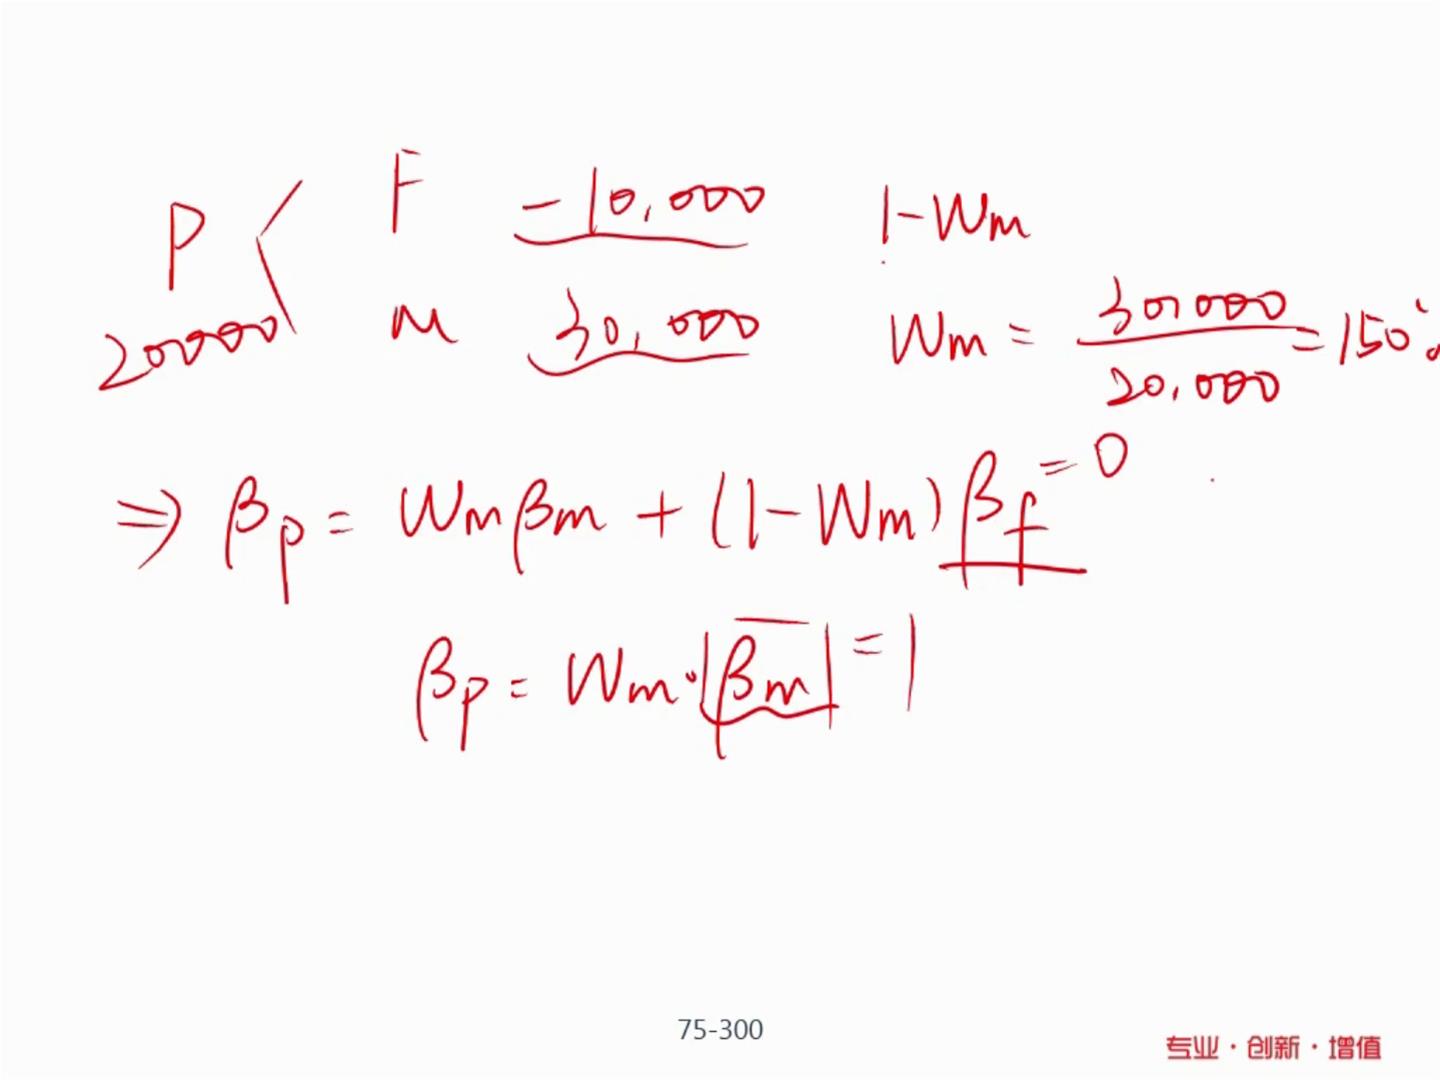 F -10,000 1-Wm
P
20000 M 30,000 Wm = 30,000 / 20,000 = 150%
⇒ βp = Wmβm + (1-Wm)βf = 0
βp = Wm·|βm| = 1
75-300
专业·创新·增值